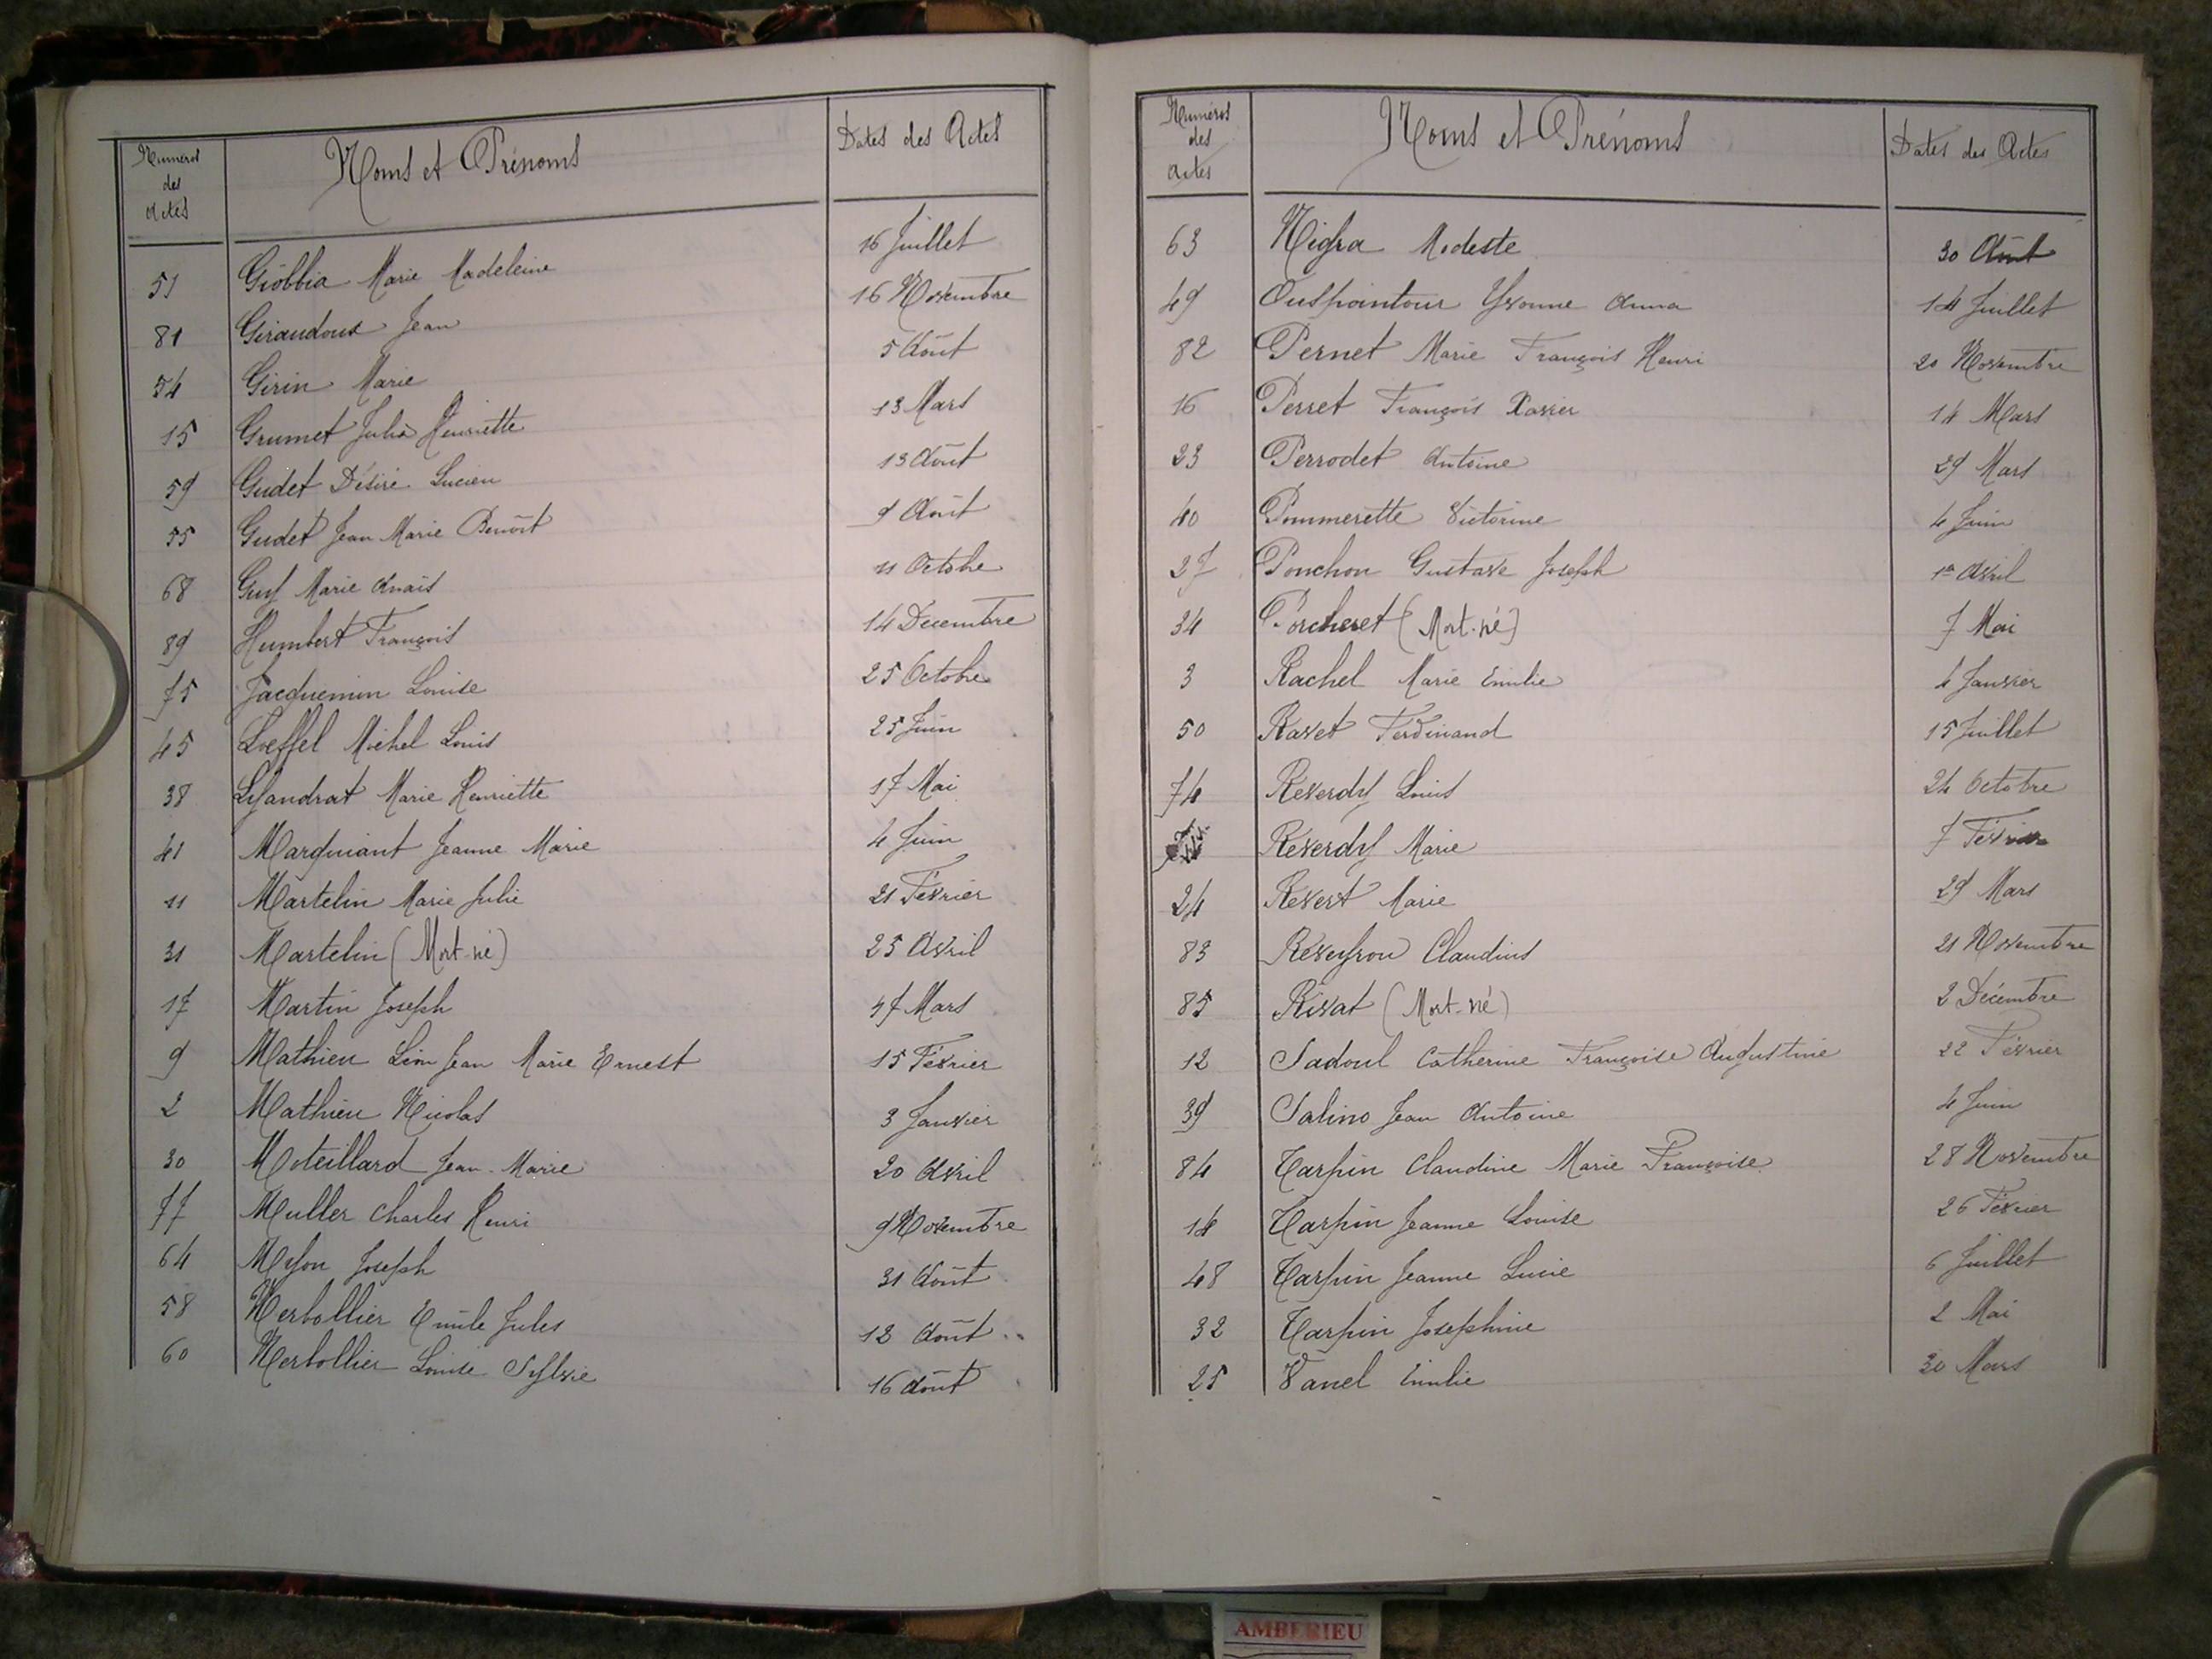 Numéros des Actes | Noms et Prénoms | Dates des Actes
51 Giobbia Marie Madeleine 16 Juillet
81 Giraudoux Jean 16 Novembre
54 Girin Marie 5 Août
15 Grumet Julia Henriette 13 Mars
59 Gudet Désiré Lucien 13 Août
55 Gudet Jean Marie Benoît 9 Août
68 Guy Marie Anaïs 11 Octobre
89 Humbert François 14 Décembre
75 Jacquemin Louise 25 Octobre
45 Loeffel Michel Louis 25 Juin
38 Lyandrat Marie Henriette 17 Mai
41 Marguiant Jeanne Marie 4 Juin
11 Martelin Marie Julie 21 Février
31 Martelin (Mort-né) 25 Avril
17 Martin Joseph 17 Mars
9 Mathieu Léon Jean Marie Ernest 15 Février
2 Mathieu Nicolas 3 Janvier
30 Moteillard Jean-Marie 20 Avril
77 Muller Charles Henri 9 Novembre
64 Myon Joseph 31 Août
58 Nerbollier Emile Jules 12 Août
60 Nerbollier Louise Sylvie 16 Août
Numéros des Actes | Noms et Prénoms | Dates des Actes
63 Nigra Modeste 30 Août
49 Ouspointour Yvonne Anna 14 Juillet
82 Pernet Marie François Henri 20 Novembre
16 Perret François Xavier 14 Mars
23 Perrodet Antoine 29 Mars
40 Pommerette Victorine 4 Juin
27 Ponchon Gustave Joseph 1er Avril
34 Porcheret (Mort-né) 7 Mai
3 Rachel Marie Emilie 4 Janvier
50 Ravet Ferdinand 15 Juillet
74 Reverdy Louis 24 Octobre
Reverdy Marie 7 Février
24 Revert Marie 29 Mars
83 Reveyron Claudius 21 Novembre
85 Rivat (Mort-né) 2 Décembre
12 Sadoul Catherine Françoise Augustine 22 Février
39 Salino Jean Antoine 4 Juin
84 Tarpin Claudine Marie Françoise 28 Novembre
14 Tarpin Jeanne Louise 26 Février
48 Tarpin Jeanne Lucie 6 Juillet
32 Tarpin Josephine 2 Mai
25 Vanel Emilie 30 Mars
AMBERIEU